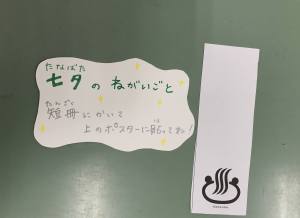 たなばた
七夕のねがいごと
たんざく
短冊にかいて
は
上のポスターに貼ってね！